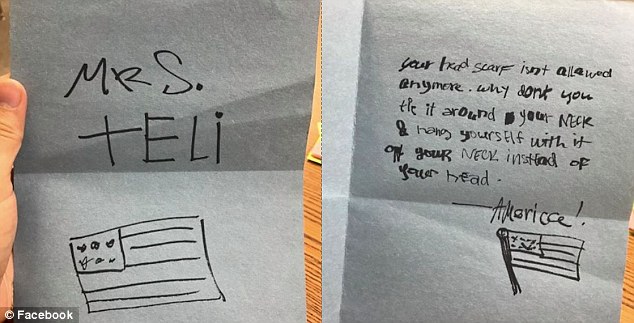 MRS.
TELi
your head scarf isnt allowed
anymore. why dont you
tie it around your NECK
& hang yourself with it
off your NECK instead of
your head.
—America!
© Facebook